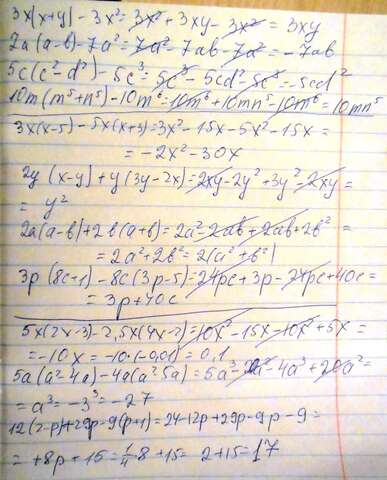 3x(x+y) - 3x² = 3x² + 3xy - 3x² = 3xy
7a(a-b) - 7a² = 7a² - 7ab - 7a² = -7ab
5c(c²-d²) - 5c³ = 5c³ - 5cd² - 5c³ = -5cd²
10m(m⁵+n⁵) - 10m⁶ = 10m⁶ + 10mn⁵ - 10m⁶ = 10mn⁵
3x(x-5) - 5x(x+3) = 3x² - 15x - 5x² - 15x =
= -2x² - 30x
2y(x-y) + y(3y-2x) = 2xy - 2y² + 3y² - 2xy =
= y²
2a(a-b) + 2b(a+b) = 2a² - 2ab + 2ab + 2b² =
= 2a² + 2b² = 2(a² + b²)
3p(8c+1) - 8c(3p-5) = 24pc + 3p - 24pc + 40c =
= 3p + 40c
5x(2x-3) - 2,5x(4x-2) = 10x² - 15x - 10x² + 5x =
= -10x = -10·(-0,01) = 0,1
5a(a²-4a) - 4a(a²-5a) = 5a³ - 20a² - 4a³ + 20a² =
= a³ = -3³ = -27
12(2-p) + 29p - 9(p+1) = 24 - 12p + 29p - 9p - 9 =
= +8p + 15 = 1/4 · 8 + 15 = 2 + 15 = 17